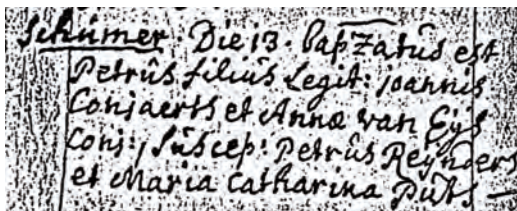 Schümer. Die 13. bapzatus est
Petrûs filiûs Legit: joannis
Conjaerts et Annæ van Eijs
Conj:, sûscep: Petrûs Reijnders
et Maria Catharina Pûts